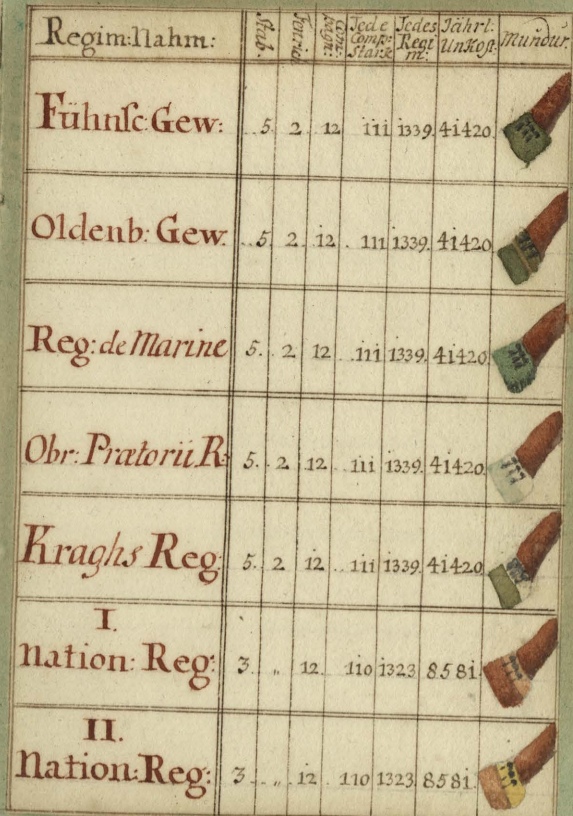 Regim: Nahm: Stab. Jede Comp: Starck Jedes Regim: Jährl: UnKost Mundur.
Fühnsc: Gew: 5. 2 12 111 1339. 41420.
Oldenb: Gew. 5. 2. 12. 111 1339. 41420.
Reg: de Marine 5. 2 12 111 1339. 41420.
Obr: Prætorii R: 5. 2 12. 111 1339. 41420.
Kraghs Reg: 5. 2 12 111 1339. 41420.
I.
Nation: Reg: 3. „ 12. 110 1323 8581.
II.
Nation: Reg: 3. „ 12. 110 1323. 8581.